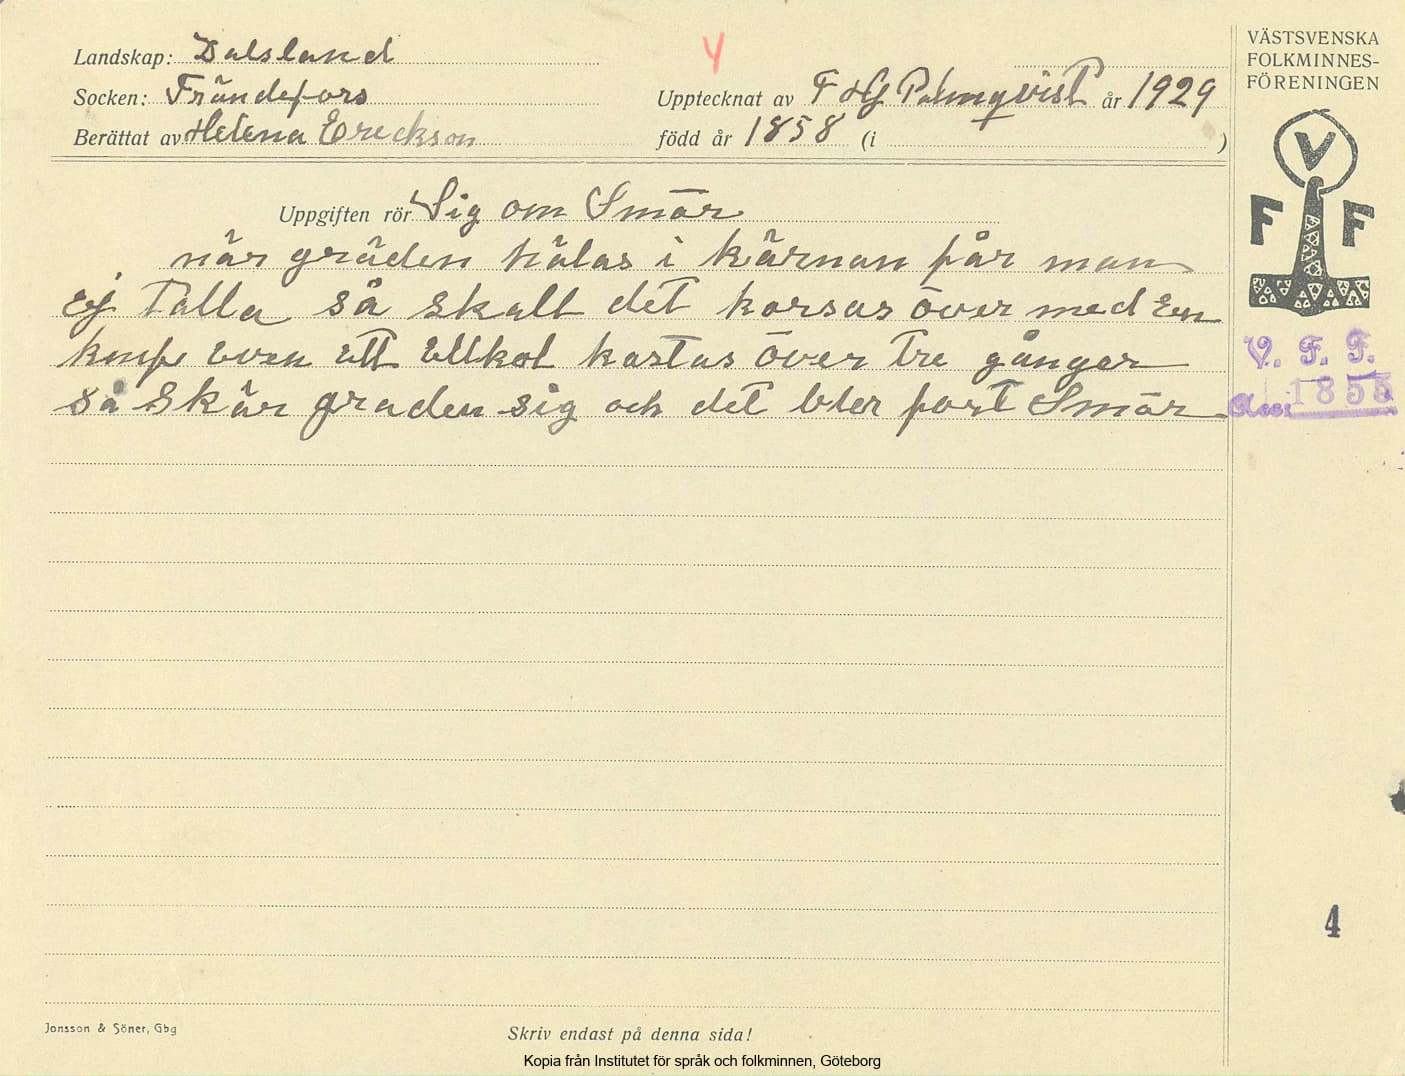 Landskap: Dalsland
Socken: Frändefors
Berättat av Helena Erickson
Y
Upptecknat av F HG Palmqvist år 1929
född år 1858 (i )
VÄSTSVENSKA
FOLKMINNES-
FÖRENINGEN
V
F F
Uppgiften rör Sig om Smör
när gräden hälas i kärnan får man
ej talla så skall det korsas över med En
knif även ett Elkol kastas över tre gånger
så Skär graden sig och det bler fort Smör
V. F. F.
1855
4
Jonsson & Söner, Gbg
Skriv endast på denna sida!
Kopia från Institutet för språk och folkminnen, Göteborg